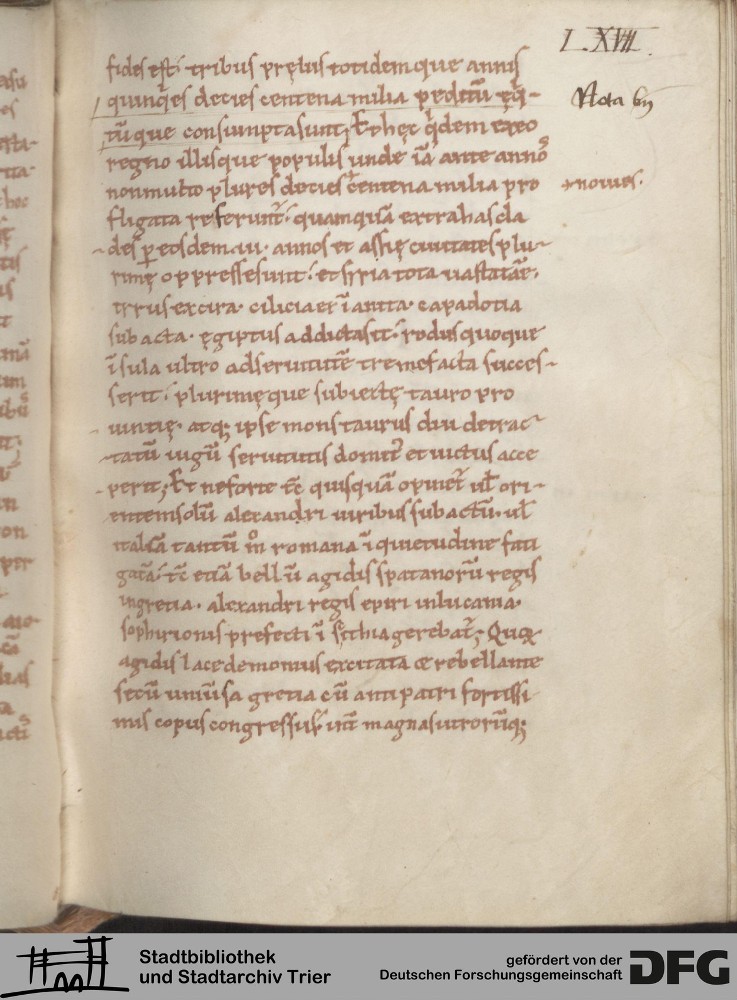 L.XVII.
fides est. tribus pręlus totidemque annis
quinq̄es decies centena milia peditū eq̄-
Nota bn̄
tūque consumpta sunt; Et hęc q̄dem ex eo
regno illisque populis unde iā ante annos
non multo plures decies centena milia pro
+novies.
fligata referunt̄. quamquā extra has cla
des p eosdem .iii. annos et assię civitates plu-
rimę oppresse sunt. et siria tota vastata ē.
tirus excisa. cilicia exīanita. capadotia
subacta. ęgiptus addicta sit. rodus quoque
īsula ultro ad servitutē tremefacta succes-
serit. plurimęque subiectę tauro pro
vintię. atq; ipse mons taurus diu detrac-
tatū iugū servitutis domit᷑ et victus acce
perit; Et ne forte t̄c quisquā opinet᷑ ul̄ ori-
entem solū alexandri viribus subactū. ul̄
italiā tantū m̊ romana īquietudine fati
gatā. t̄c etiā bellū agidis spatanorū regis
in gretia. alexandri regis epiri in lucania.
sophirionis prefecti ī scithia gerebat᷑; Quo&
agidis lacedemonius excitata & rebellante
secū univ̄sa gretia cū antipatri fortissi
mis copiis congressus. int̄ magnas utrorūq;
Stadtbibliothek
und Stadtarchiv Trier
gefördert von der
Deutschen Forschungsgemeinschaft
DFG